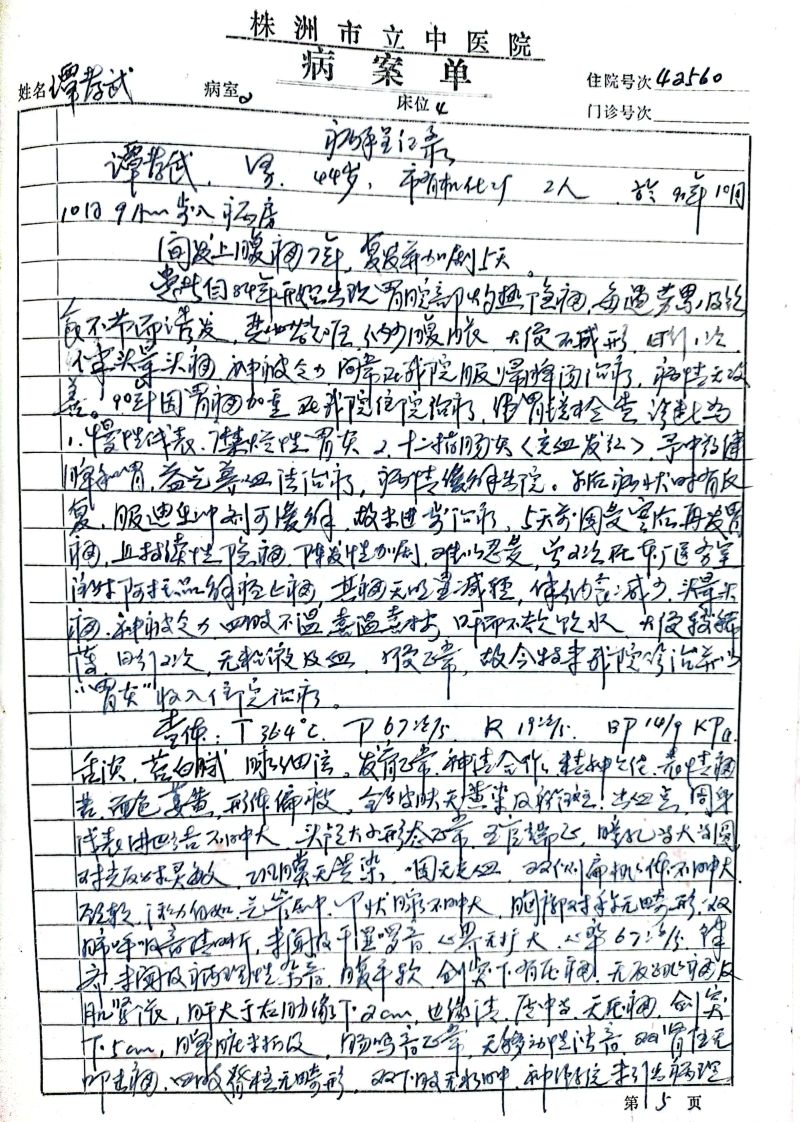 株洲市立中医院
病案单
姓名 谭孝武 病室 2 床位 4 住院号次 42560
门诊号次
病程记录
谭孝武，男，44岁，市有机化 工人 于91年10月
10日9Am步入病房
间发上腹痛7年，复发并加剧5天。
患者自84年开始出现胃脘部灼热隐痛，每遇劳累及饮
食不节而诱发，腹胀 大便不成形，日行1次，
伴头晕头痛，神疲乏力 间常在我院服 治疗，病情无改
善。90年因胃痛加重在我院住院治疗，作胃镜检查诊断为
1.慢性浅表、糜烂性胃炎 2.十二指肠炎（充血发红），予中药健
脾和胃，益气养血法治疗，病情缓解出院。尔后病状时有反
复，服迪生冲剂可缓解，故未进一步治疗，5天前因受寒后再发胃
痛，且持续性隐痛，阵发性加剧，难以忍受，曾2次在本厂医务室
阿托品解痉止痛，其痛无明显减轻，伴纳食减少，头晕头
痛，神疲乏力 四肢不温 喜温喜按 口干不欲饮水 大便较稀
薄，日行2次，无粘液及血，小便正常，故今特来我院诊治并以
“胃炎”收入住院治疗。
查体：T 36.4℃ P 67次/分 R 19次/分 BP 14/9 KPa
舌淡，苔白腻 脉细弦。发育正常，神清合作，精神欠佳，表情痛
苦，面色萎黄，形体偏瘦，全身皮肤无黄染及瘀斑、出血点，周身
浅表淋巴结不肿大，头颅大小形态正常，五官端正，瞳孔等大等圆
对光反射灵敏，巩膜无黄染，咽无充血，双侧扁桃体不肿大，
颈软，活动自如，气管居中，甲状腺不肿大，胸廓对称无畸形，双
肺呼吸音清晰，未闻及干湿啰音 心界无扩大，心率67次/分，律
齐，未闻及病理性杂音，腹平软，剑突下有压痛，无反跳痛及
肌紧张，肝大于右肋缘下2cm，边缘清，质中等，无压痛，剑突
下5cm，脾脏未扪及，肠鸣音正常，无移动性浊音 双肾区无
叩击痛，四肢脊柱无畸形，双下肢无水肿，神经系统未引出病理
第 5 页